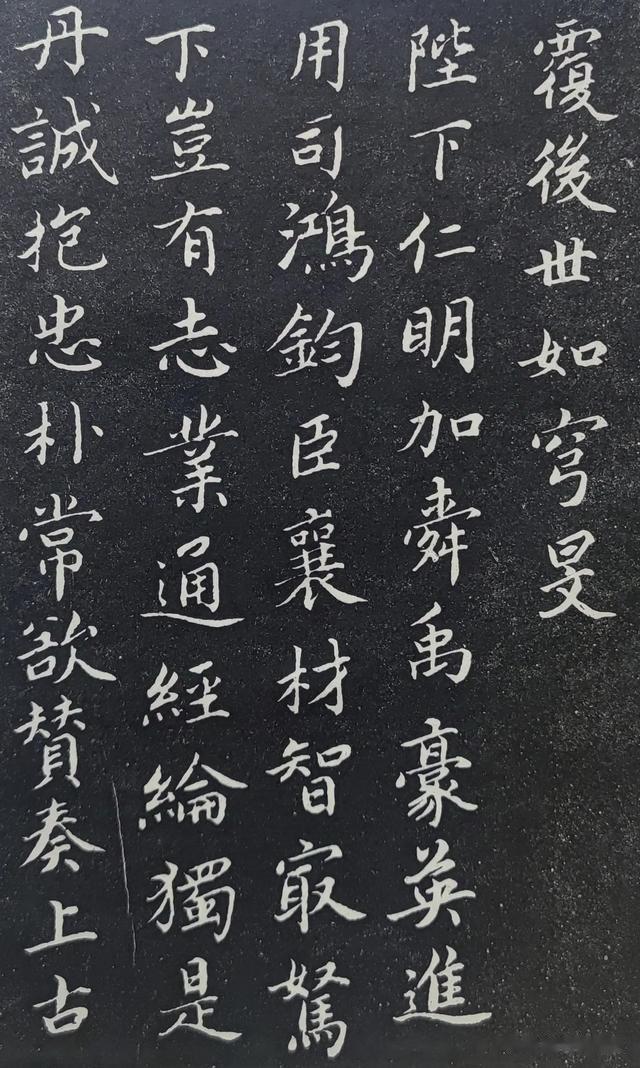 覆後世如穹旻
陛下仁明加舜禹豪英進
用司鴻鈞臣襄材智㝡駑
下豈有志業通經綸獨是
丹誠抱忠朴常欲賛奏上古